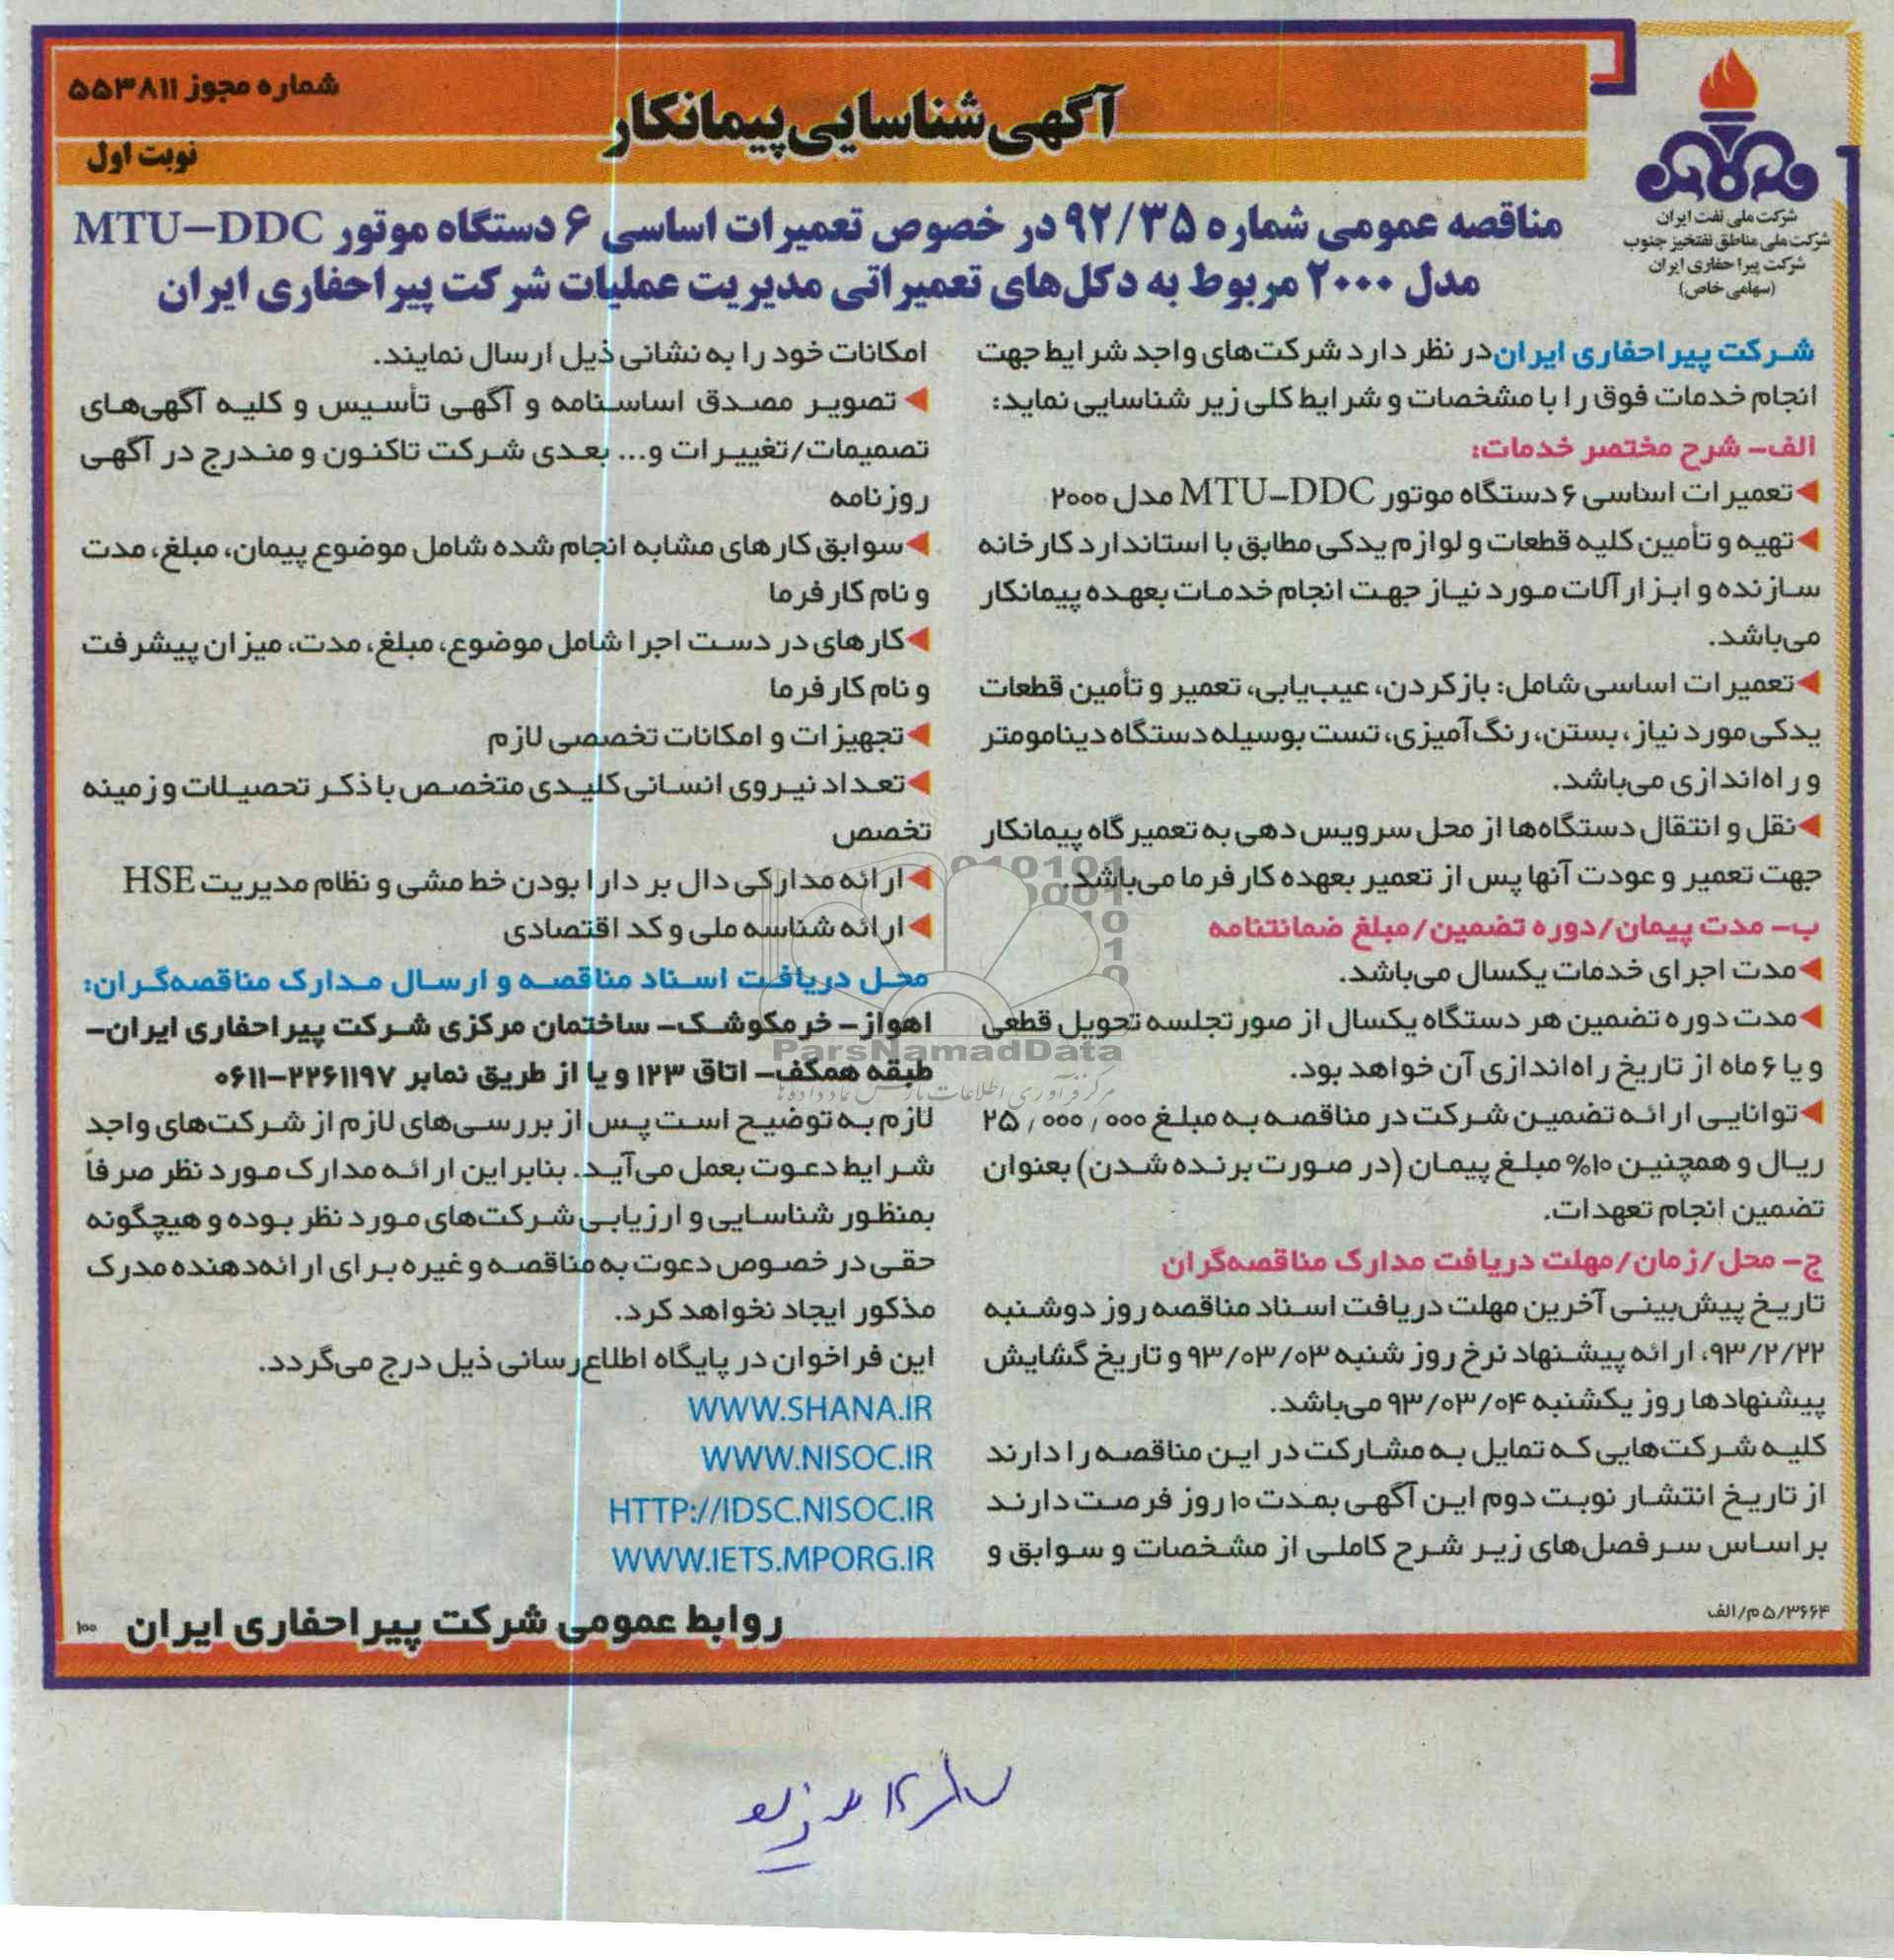 شماره مجوز ۵۵۳۸۱۱
آگهی شناسایی پیمانکار
نوبت اول
شرکت ملی نفت ایران
شرکت ملی مناطق نفتخیز جنوب
شرکت پیراحفاری ایران
(سهامی خاص)
مناقصه عمومی شماره ۹۲/۳۵ در خصوص تعمیرات اساسی ۶ دستگاه موتور MTU-DDC
مدل ۲۰۰۰ مربوط به دکل‌های تعمیراتی مدیریت عملیات شرکت پیراحفاری ایران
شرکت پیراحفاری ایران در نظر دارد شرکت‌های واجد شرایط جهت
انجام خدمات فوق را با مشخصات و شرایط کلی زیر شناسایی نماید:
الف- شرح مختصر خدمات:
◄تعمیرات اساسی ۶ دستگاه موتور MTU-DDC مدل ۲۰۰۰
◄تهیه و تأمین کلیه قطعات و لوازم یدکی مطابق با استاندارد کارخانه
سازنده و ابزارآلات مورد نیاز جهت انجام خدمات بعهده پیمانکار
می‌باشد.
◄تعمیرات اساسی شامل: باز کردن، عیب‌یابی، تعمیر و تأمین قطعات
یدکی مورد نیاز، بستن، رنگ‌آمیزی، تست بوسیله دستگاه دینامومتر
و راه‌اندازی می‌باشد.
◄نقل و انتقال دستگاه‌ها از محل سرویس دهی به تعمیرگاه پیمانکار
جهت تعمیر و عودت آنها پس از تعمیر بعهده کارفرما می‌باشد.
ب- مدت پیمان/دوره تضمین/مبلغ ضمانتنامه
◄مدت اجرای خدمات یکسال می‌باشد.
◄مدت دوره تضمین هر دستگاه یکسال از صورتجلسه تحویل قطعی
و یا ۶ ماه از تاریخ راه‌اندازی آن خواهد بود.
◄توانایی ارائه تضمین شرکت در مناقصه به مبلغ ۲۵٬۰۰۰٬۰۰۰
ریال و همچنین ۱۰% مبلغ پیمان (در صورت برنده شدن) بعنوان
تضمین انجام تعهدات.
ج- محل/زمان/مهلت دریافت مدارک مناقصه‌گران
تاریخ پیش‌بینی آخرین مهلت دریافت اسناد مناقصه روز دوشنبه
۹۳/۲/۲۲، ارائه پیشنهاد نرخ روز شنبه ۹۳/۰۳/۰۳ و تاریخ گشایش
پیشنهادها روز یکشنبه ۹۳/۰۳/۰۴ می‌باشد.
کلیه شرکت‌هایی که تمایل به مشارکت در این مناقصه را دارند
از تاریخ انتشار نوبت دوم این آگهی بمدت ۱۰ روز فرصت دارند
براساس سرفصل‌های زیر شرح کاملی از مشخصات و سوابق و
امکانات خود را به نشانی ذیل ارسال نمایند.
◄ تصویر مصدق اساسنامه و آگهی تأسیس و کلیه آگهی‌های
تصمیمات/تغییرات و... بعدی شرکت تاکنون و مندرج در آگهی
روزنامه
◄سوابق کارهای مشابه انجام شده شامل موضوع پیمان، مبلغ، مدت
و نام کارفرما
◄کارهای در دست اجرا شامل موضوع، مبلغ، مدت، میزان پیشرفت
و نام کارفرما
◄تجهیزات و امکانات تخصصی لازم
◄تعداد نیروی انسانی کلیدی متخصص با ذکر تحصیلات و زمینه
تخصص
◄ارائه مدارکی دال بر دارا بودن خط مشی و نظام مدیریت HSE
◄ارائه شناسه ملی و کد اقتصادی
محل دریافت اسناد مناقصه و ارسال مدارک مناقصه‌گران:
اهواز- خرمکوشک- ساختمان مرکزی شرکت پیراحفاری ایران-
طبقه همکف- اتاق ۱۲۳ و یا از طریق نمابر ۲۲۶۱۱۹۷-۰۶۱۱
لازم به توضیح است پس از بررسی‌های لازم از شرکت‌های واجد
شرایط دعوت بعمل می‌آید. بنابراین ارائه مدارک مورد نظر صرفاً
بمنظور شناسایی و ارزیابی شرکت‌های مورد نظر بوده و هیچگونه
حقی در خصوص دعوت به مناقصه و غیره برای ارائه‌دهنده مدرک
مذکور ایجاد نخواهد کرد.
این فراخوان در پایگاه اطلاع‌رسانی ذیل درج می‌گردد.
WWW.SHANA.IR
WWW.NISOC.IR
HTTP://IDSC.NISOC.IR
WWW.IETS.MPORG.IR
۵/۳۶۶۴م/الف
روابط عمومی شرکت پیراحفاری ایران
۱۰۰
ParsNamadData